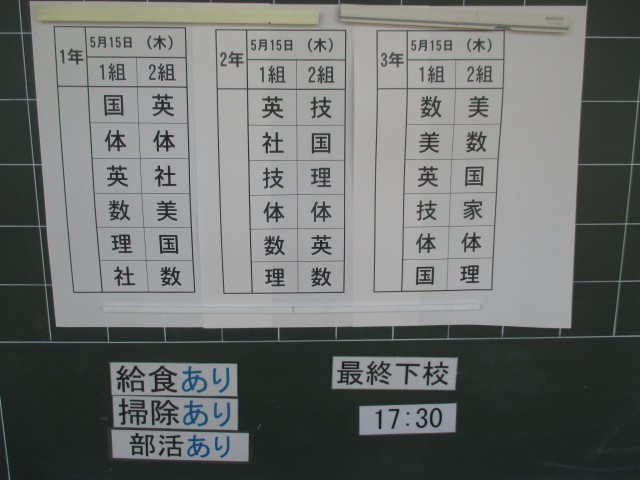 1年 5月15日 （木）
1組 2組
国 英
体 体
英 社
数 美
理 国
社 数
2年 5月15日 （木）
1組 2組
英 技
社 国
技 理
体 体
数 英
理 数
3年 5月15日 （木）
1組 2組
数 美
美 数
英 国
技 家
体 体
国 理
給食あり
掃除あり
部活あり
最終下校
17:30